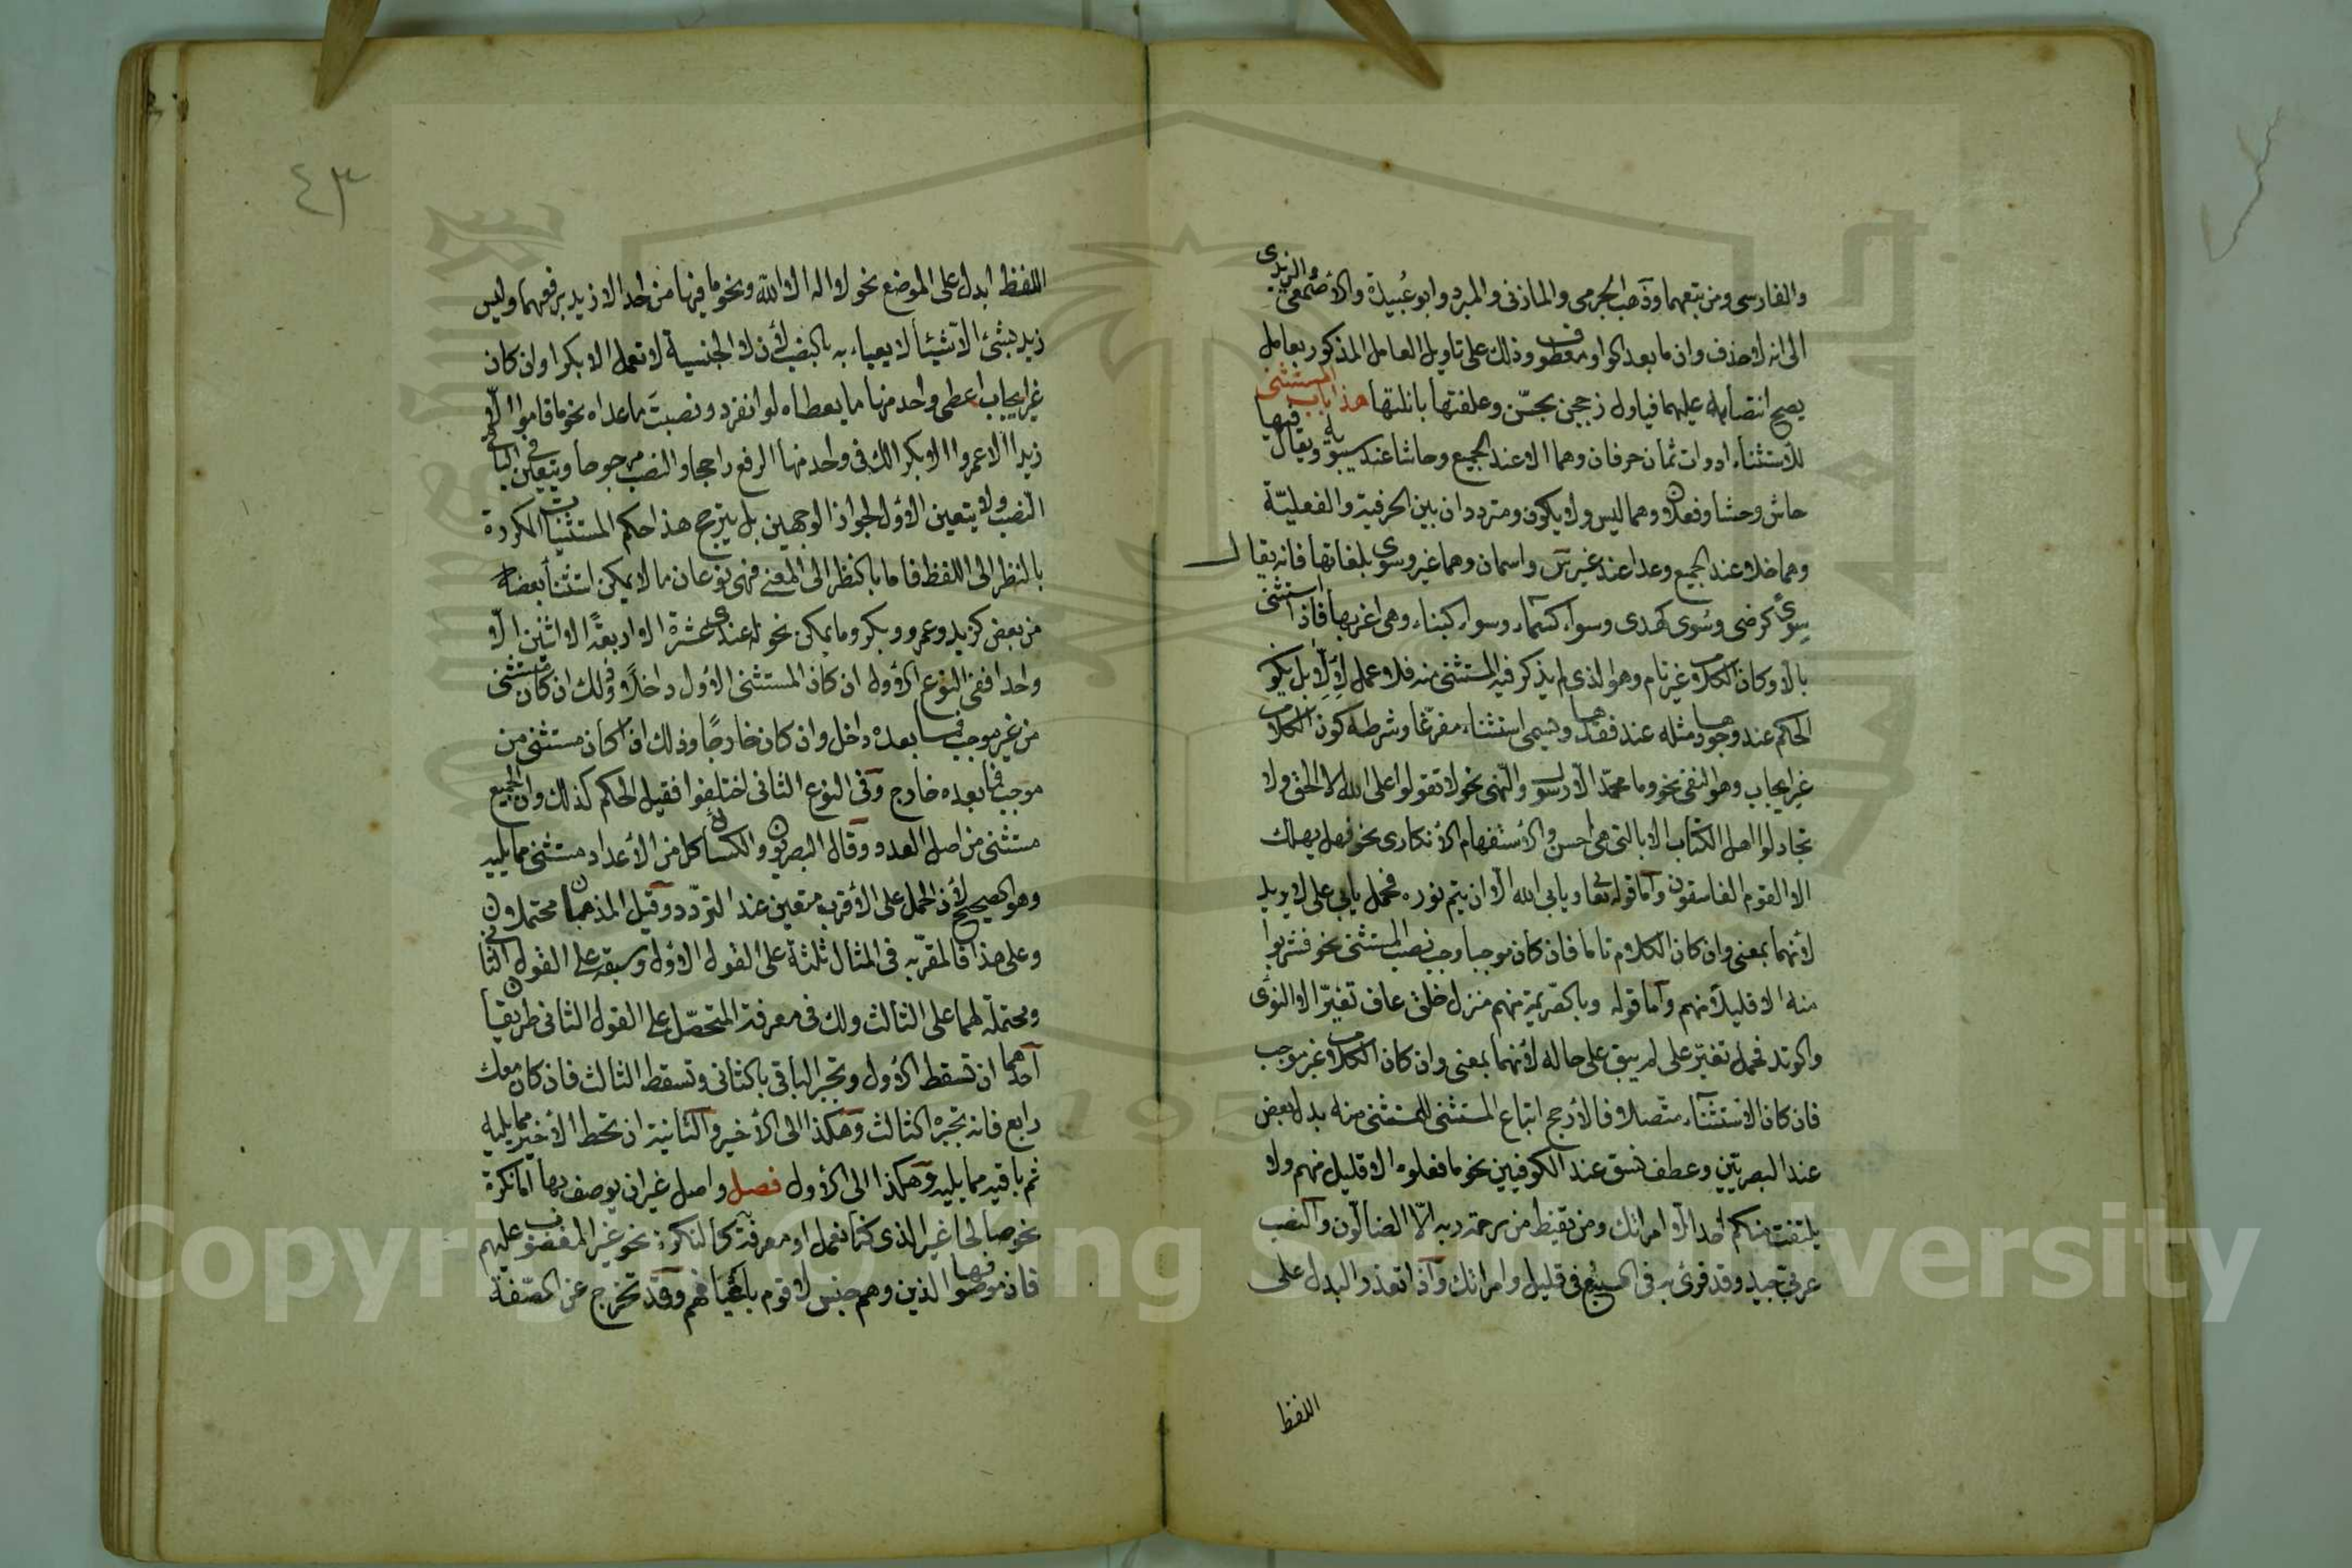 والفارسى ومن تبعهما وذهب الجرمى والمازنى والمبرد وابو عُبيدة والاصمعى واليزيدى
الى انه لا حذف وان ما بعد الواو معطوف وذلك على تاويل العامل المذكور بعامل
يصح انصبابه عليهما فياول زججن بحسّن وعلفتها بانلتها هذا باب المستثنى
للاستثناء ادوات ثمان حرفان وهما الا عند الجميع وحاشا عند سيبويه ويقال فيها
حاش وحشا وفعلان وهما ليس ولا يكون ومترددان بين الحرفية والفعليّة
وهما خلا عند الجميع وعدا عند غير س واسمان وهما غير وسوى بلغاتها فانه يقال
سِوىً كرضى وسُوى كهدى وسواء كسماء وسواء كبناء وهى اغربها فاذا استثنى
بالا وكان الكلام غير تام وهو الذى لم يذكر فيه المستثنى منه فلا عمل لِالّا بل يكون
الحكم عند وجودها مثله عند فقدها ويسمى استثناء مفرّغا وشرطه كون الكلام
غير ايجاب وهو النفى نحو وما محمّد الّا رسول والنهى نحو لا تقولوا على الله الا الحق ولا
تجادلوا اهل الكتاب الا بالتى هى احسن والاستفهام الانكارى نحو فهل يهلك
الا القوم الفاسقون وأما قوله تعا ويابى الله الّا ان يتم نوره فحمل يابى على لا يريد
لانهما بمعنى وان كان الكلام تاما فان كان موجبا وجب نصب المستثنى نحو فشربوا
منه الا قليلاً منهم وأما قوله وبالصّريمة منهم منزل خلق عاف تغيّر الا النوى
والوتد فحمل تغيّر على لم يبق على حاله لانهما بمعنى وان كان الكلام غير موجب
فان كان الاستثناء متصلا فالارجح اتباع المستثنى للمستثنى منه بدل بعض
عند البصريين وعطف نسق عند الكوفيين نحو ما فعلوه الا قليل منهم ولا
يلتفت منكم أحد الّا امراتك ومن يقنط من رحمة ربه الّا الضالّون والنصب
عربىّ جيد وقد قرئ به فى السبع فى قليل وامراتك وآذا تعذر البدل على
اللفظ
٤٣
اللفظ ابدل على الموضع نحو لا اله الا الله ونحو ما فيها من احد الا زيد برفعهما وليس
زيد بشئ الّا شيئاً لا يعباء به بالنصب لأن لا الجنسية لا تعمل الا بكرا وان كان
غير ايجاب اعطى واحد منها ما يعطاه لو انفرد ونصبتَ ما عداه نحو ما قاموا الّا
زيد الا عمروا الا بكرا لك فى واحد منها الرفع راجحا والنصب مرجوحا ويتعين فى الباقى
النصب ولا يتعين الاول لجواز الوجهين بل يترجح هذا حكم المستثنيات المكررة
بالنظر الى اللفظ فاما بالنظر الى المعنى فهى نوعان ما لا يمكن استثناء بعضه
من بعض كزيد وعمرو وبكر وما يمكن نحو له عندى عشرة الا اربعةً الا اثنين الّا
واحدا ففى النوع الاول ان كان المستثنى الاول داخلاً وذلك ان كان مستثنى
من غير موجب فما بعده داخل وان كان خارجًا وذلك ان كان مستثنى من
موجب فما بعده خارج وفى النوع الثانى اختلفوا فقيل الحكم كذلك وان الجميع
مستثنى من اصل العدد وقال البصريون والكسائى كل من الأعداد مستثنى مما يليه
وهو الصحيح لأن الحمل على الأقرب متعين عند التردّد وقيل المذهبان محتملان
وعلى هذا فالمقرّبه فى المثال ثلثة على القول الاول وسبعة على القول الثانى
ومحتملة لهما على الثالث ولك فى معرفة المتحصّل على القول الثانى طريقان
آحدهما ان تسقط الاول وتجبر الباقى بالثانى وتسقط الثالث فان كان معك
رابع فانه تجبره الثالث وهكذا الى الأخير والثانية ان تحط الأخير مما يليه
ثم باقيه مما يليه وهكذا الى الأول فصل واصل غير ان يوصف بها اما نكرة
نحو صالحا غير الذى كنا نعمل او معرفة كالنكرة نحو غير المغضوب عليهم
فان موضوفها الذين وهم جنس لا قوم باعيانهم وقد تخرج عن الصّفة